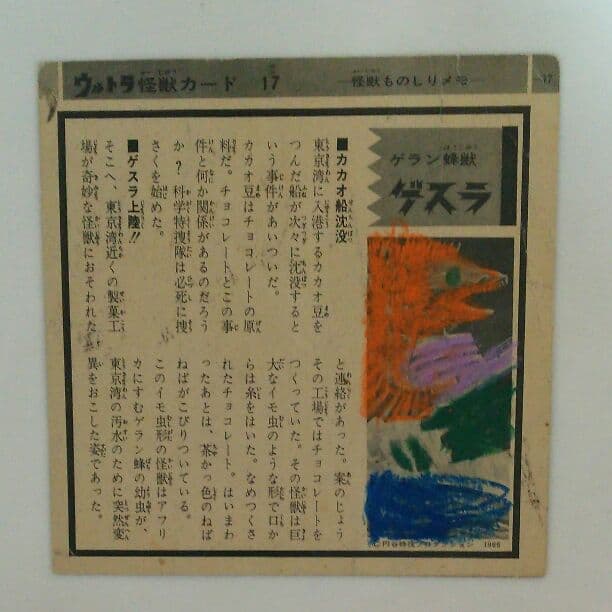 ウルトラ怪獣カード 17
―怪獣ものしりメモ―
17
ゲラン蜂獣
ゲスラ
■カカオ船沈没
東京湾に入港するカカオ豆を
つんだ船が次々に沈没すると
いう事件があいついだ。
カカオ豆はチョコレートの原
料だ。チョコレートとこの事
件と何か関係があるのだろう
か？科学特捜隊は必死に捜
さくを始めた。
■ゲスラ上陸!!
そこへ、東京湾近くの製菓工
場が奇妙な怪獣におそわれた
と連絡があった。案のじょう
その工場ではチョコレートを
つくっていた。その怪獣は巨
大なイモ虫のような形で口か
らは糸をはいた。なめつくさ
れたチョコレート。はいまわ
ったあとは、茶かっ色のねば
ねばがこびりついている。
このイモ虫形の怪獣はアフリ
カにすむゲラン蜂の幼虫が、
東京湾の汚水のために突然変
異をおこした姿であった。
円谷特技プロダクション 1966